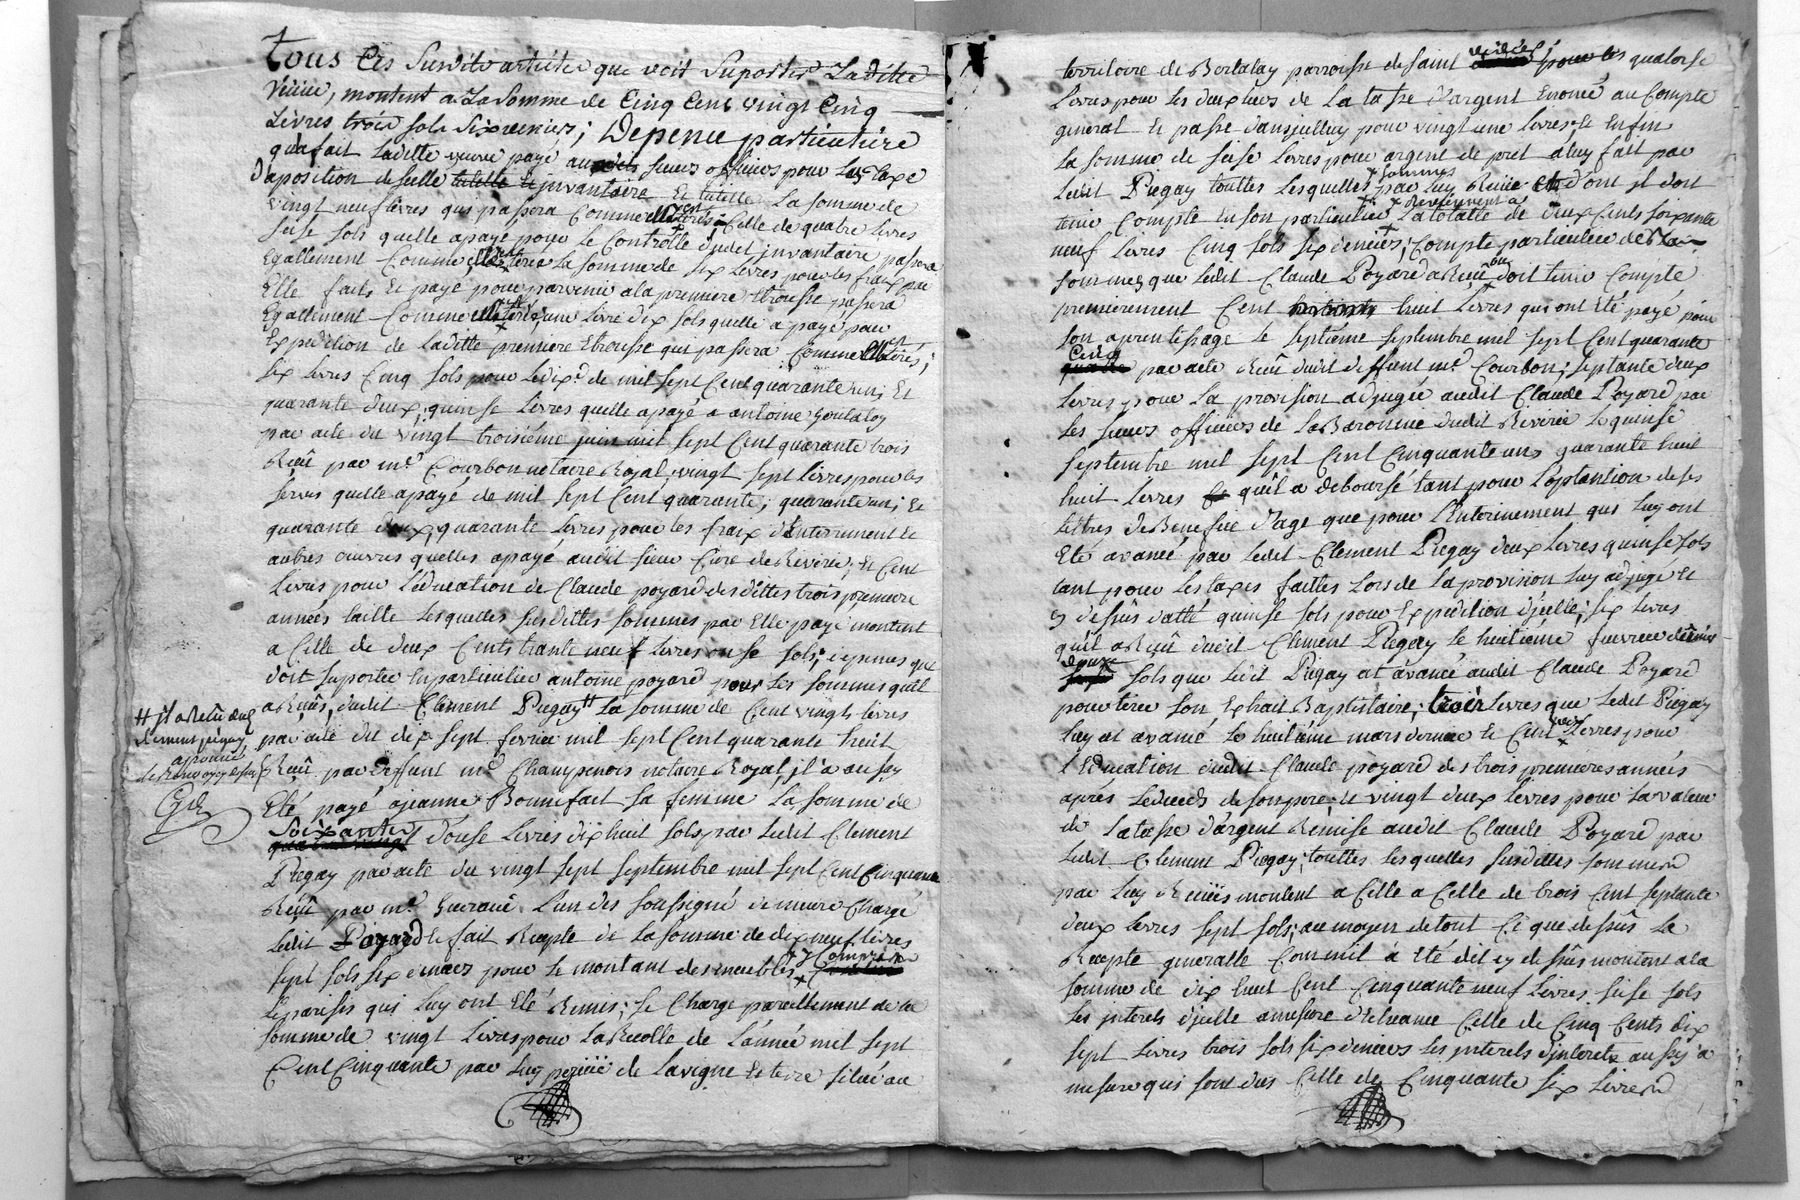 tous Ces Susdits articles que doit Suporter Laditte
Veuve, montent a La Somme de Cinq Cent vingt Cinq
Livres trois sols Six deniers; Depence particulière
qu'a fait Laditte veuve payé aux sieurs officiers pour Les taxe
D'aposition de sellé tutelle Et invantaire Et tutelle La somme de
vingt neuf livres qui passera Comme Celle de quatre livres
seise sols quelle a payé pour le Controlle dudit invantaire passera
Egallement Comme La somme de six livres pour les fraix par
Elle faits Et payé pour parvenir a la premiere Etrousse passera
Egallement Comme une livre dix sols quelle a payé pour
Expedition de laditte premiere Etrousse qui passera Comme
six livres Cinq sols pour le dix.e de mil sept Cent quarante un, Et
quarante deux; quinse livres quelle a payé a antoine Goutaloy
par acte du vingt troisiéme juin mil sept Cent quarante trois
Reçû par m.e Courbon notaire Royal; vingt sept livres pour les
servis quelle a payé de mil sept Cent quarante; quarante un; Et
quarante deux; quarante livres pour les fraix d'Enterrement Et
autres œuvres quelles a payé audit sieur Curé de Riverie; Et Cent
livres pour l'éducation de Claude poyard desdittes trois premiere
années laitte Lesquelles susdittes sommes par Elle payé montent
a Celle de deux Cents trante neuf livres onse sols; depenses que
doit suporter En particulier antoine poyard pour Les sommes quil
a Reçûës dudit Clement Piegay # La somme de Cent vingt livres
# il a Retû dud.
Clement piegay
aprouvé
le Renvoy cy dessus
par acte du dix sept fevrier mil sept Cent quarante huit
Reçû par deffunt m.e Champenois notaire Royal, il a aussy
Eté payé a jeanne Bonnefait sa femme La somme de
Soixante
quatre vingt douse livres dix huit sols par Ledit Clement
Piegay par acte du vingt sept septembre mil sept Cent Cinquante
Reçû par m.e L'un des soussigné demeure Chargé
Ledit Poyard le fait Recepte de La somme de dix neuf livres
sept sols six deniers pour le montant des meubles y Comprir
Les arises qui luy ont Eté Remis; se Charge pareillement de la
somme de vingt Livres pour La Recolle de L'année mil sept
Cent Cinquante par luy perçüe de Lavigne Et terre située au
territoire de Bertalay parroisse de saint pour les quatorse
livres pour les deux tiers de La tasse d'argent Enoncé au Compte
general Et passé dans julluy pour vingt une livres Et Enfin
La somme de seise livres pour argent de pret a luy fait par
Ledit Piegay touttes Lesquelles sommes par luy Reçüe dont il doit
tenir Compte En son particulier Reviennent a La totalle de deux Cents soixante
neuf livres Cinq sols six deniers; Compte particulier des
sommes que Ledit Claude Poyard a Reçû ou doit tenir Compte
premierement Cent huit livres qui ont Eté payé pour
son aprentissage le septiéme septembre mil sept Cent quarante
Cinq
quatre par acte Reçû dudit deffunt m.e Courbon; septante deux
livres pour La provision adjugée audit Claude Poyard par
Les sieurs officiers de La Baronnie dudit Riverie Le quinse
septembre mil sept Cent Cinquante un quarante huit
huit livres quil a deboursé tant pour l'optantion de ses
lettres de Benefice d'age que pour l'Enterinement qui luy ont
Eté avancé par Ledit Clement Piegay deux livres quinse sols
tant pour Les taxes faittes Lors de La provision luy adjugé Et
cy dessûs datté quinse sols pour Expedition d'icelle; six livres
qu'il a Reçû dudit Clement Piegay le huitiéme fevrier dernier
douze
sols que ledit Piegay at avancé audit Claude Poyard
pour tirer son Extrait Baptistaire; trois livres que Ledit Piegay
luy at avancé Le huitiéme mars dernier Et Cent livres pour
l'Education dudit Claude poyard des trois premieres années
aprés Le decés de son pere; Et vingt deux livres pour La valeur
de La tasse d'argent Remise audit Claude Poyard par
Ledit Clement Piegay; touttes lesquelles susdittes sommes
par luy Reçüës montent a Celle a Celle de trois Cent septante
deux livres sept sols; au moyen de tout Ce que dessûs La
Recepte generalle Comm'il à Eté dit cy dessûs montent a la
somme de dix huit Cent Cinquante neuf livres seise sols
Les interets d'icelle a mesure d'Echeance Celle de Cinq Cents dix
sept livres trois sols six deniers Les interets d'interets aussy a
mesure qui sont dus Celle de Cinquante six livres